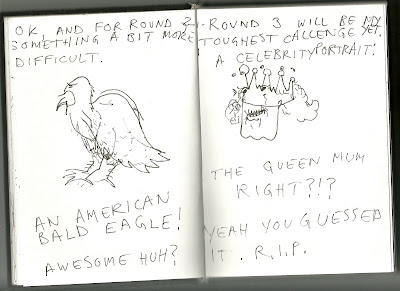 OK, AND FOR ROUND 2
SOMETHING A BIT MORE
DIFFICULT.
AN AMERICAN
BALD EAGLE!
AWESOME HUH?
ROUND 3 WILL BE MY
TOUGHEST CALLENGE YET.
A CELEBRITY PORTRAIT!
THE QUEEN MUM
RIGHT?!?
YEAH YOU GUESSED
IT. R.I.P.